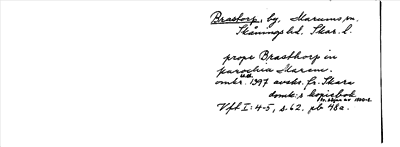 Brastorp, by, Marums sn.
Skånings hd. Skar. l.
prope Brasthorp in
parochia Marem.
omkr. 1397 avskr. fr. Skara
domk:s kopiebok
Vft I: 4-5, s. 62. pb 48a.